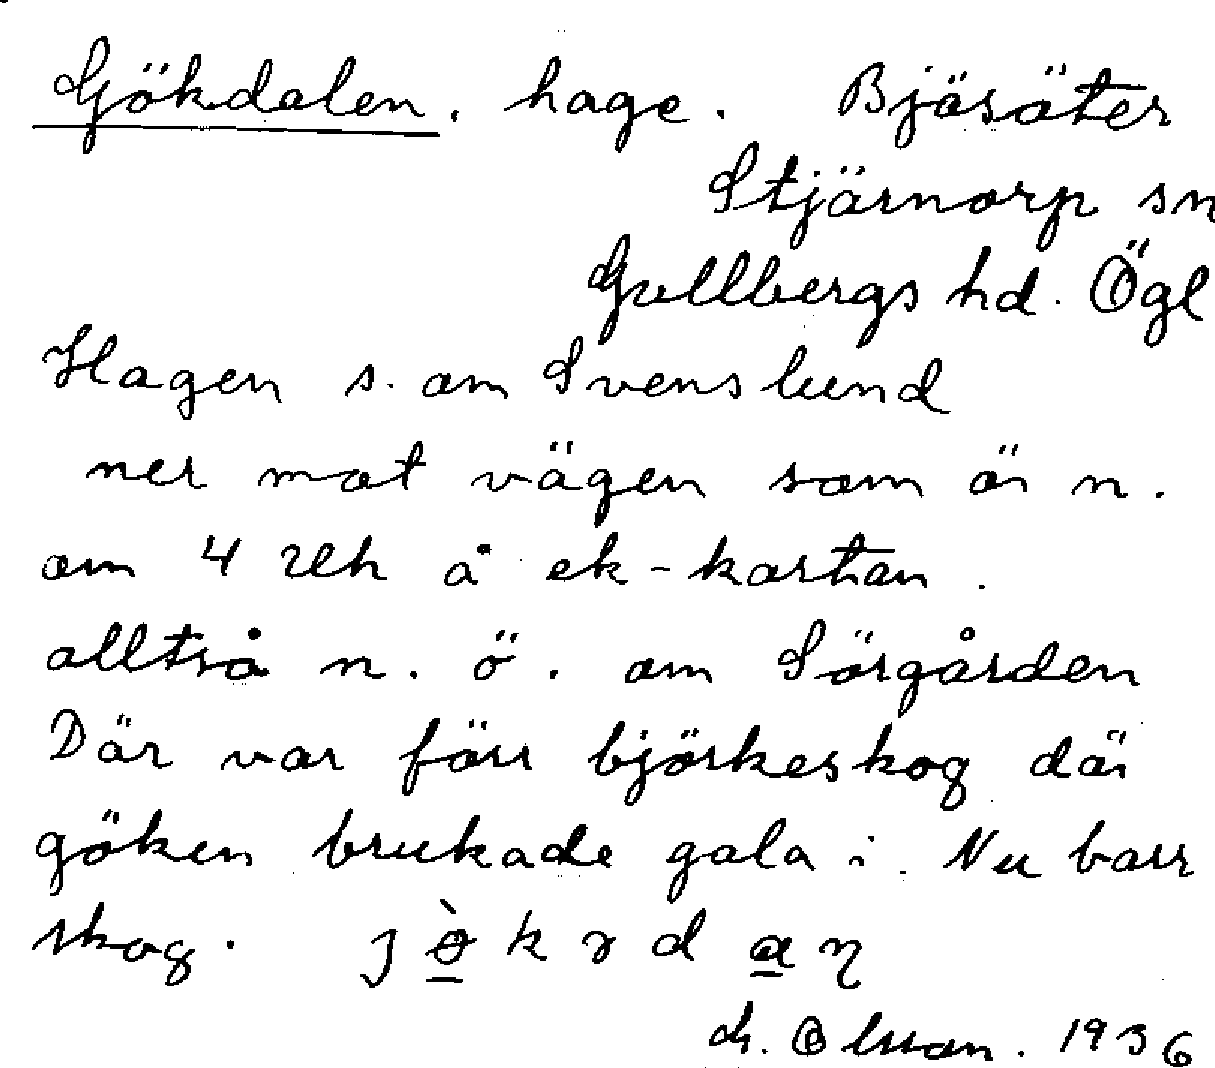 Gökdalen. hage. Bjäsäter
Stjärnorp sn
Gullbergs hd. Ögl
Hagen s. om Svenslund
ner mot vägen som är n.
om 4 reh å ek-kartan.
alltså n. ö. om Sörgården
Där var förr björkeskog där
göken brukade gala i. Nu barr
skog.
Olsson. 1936